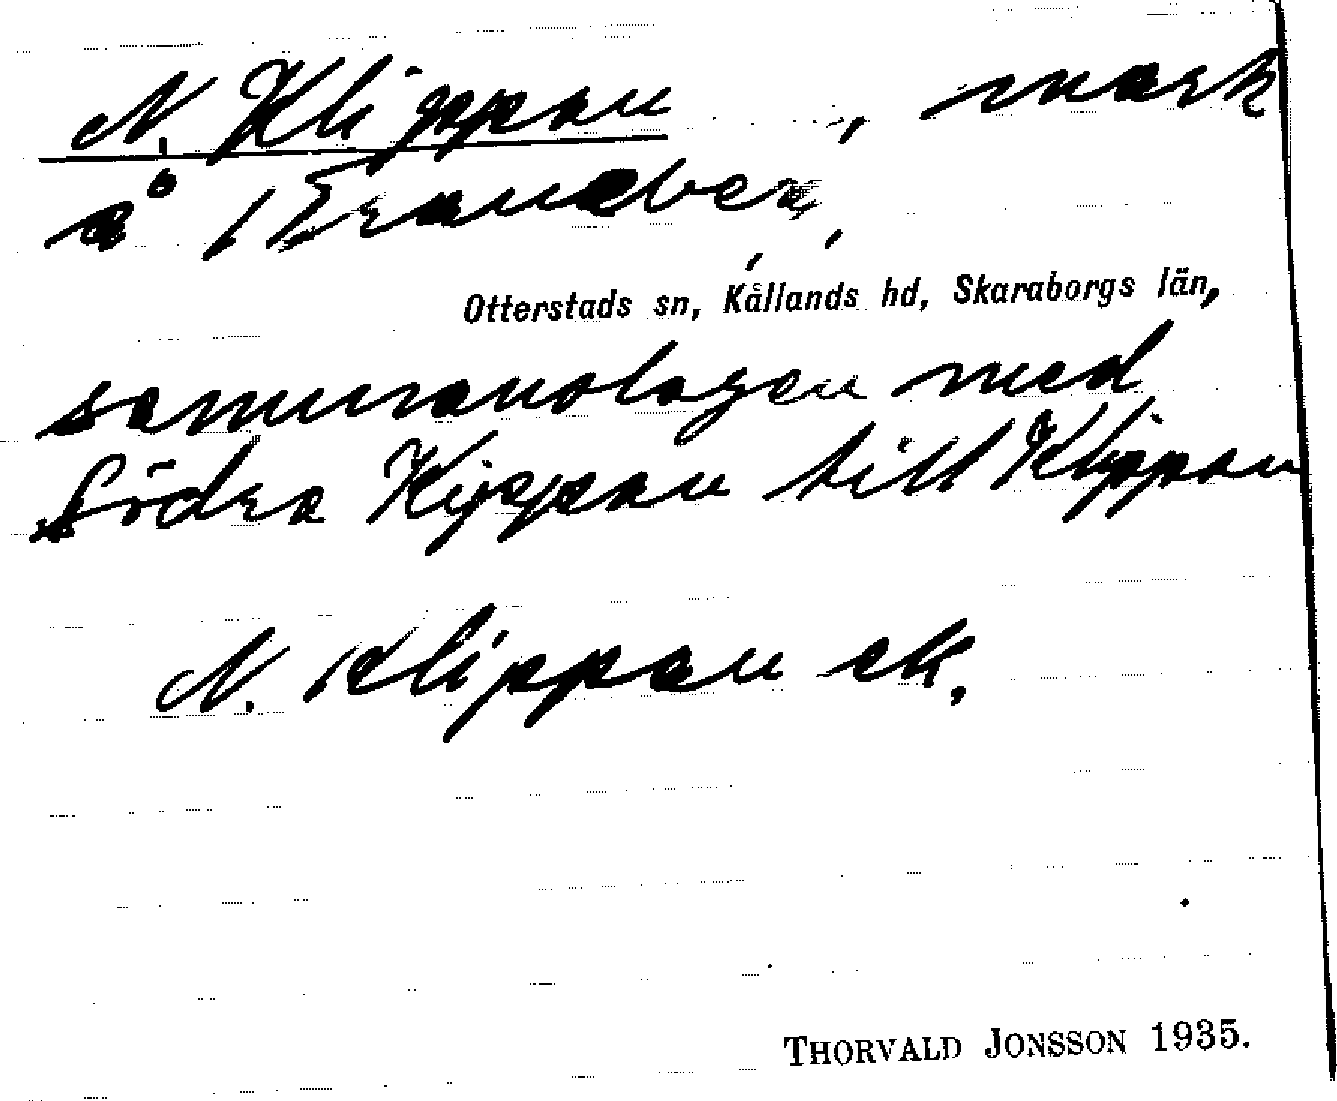 N. Klippan, mark
å Braneberg,
Otterstads sn, Kållands hd, Skaraborgs län,
sammanologen med
Södra Klippan till Klippan
N. Klippan ek.
THORVALD JONSSON 1935.